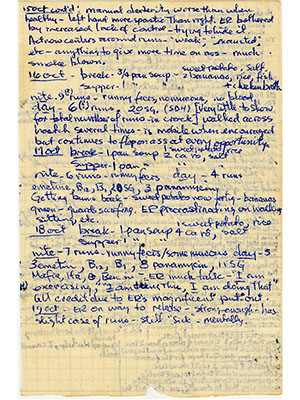 15 Oct cont'd. manual dexterity worse than when
healthy - left hand more spastic than right. ER bothered
by increased lack of control - trying to hide it
normal runs - weak, "exhausted",
etc - anything to give more time on ass - much
smoke blown.
sweet potato, salt
16 Oct - break - 3/4 pan soup - 2 bananas, rice, fish
supper - 1 " " + chicken broth
nite - 9 runs - runny feces, no mucous, no blood
day - 6 runs - 20 SG, (5 DH) [very little to show
for total number of runs in crock] walked across
several times - is mobile when encouraged
but continues to flop on ass at every opportunity.
sweet potato, rice
17 Oct break - 1 pan soup 2 ca ro, salt
supper - 1 pan "
nite - 6 runs - runny feces day - 4 runs
emetine, B12, B1, 20 SG, 3
Getting buns back - sweet potatoes now - bananas
green - ER procrastinating on walking,
sitting etc.
sweet potato, rice
18 Oct break - 1 pan soup 4 ca ro, salt
supper 1 " "
nite - 7 runs - runny feces/some mucous day - 5
3 emetine, B12, B1, 8 11 SG
- ER much talk - "I am
exercising," "I am doing this, I am doing that"
All credit due to ER's magnificent put out.
19 Oct - ER on way to release - strong enough - has
slight case of runs - still "sick" - mentally.